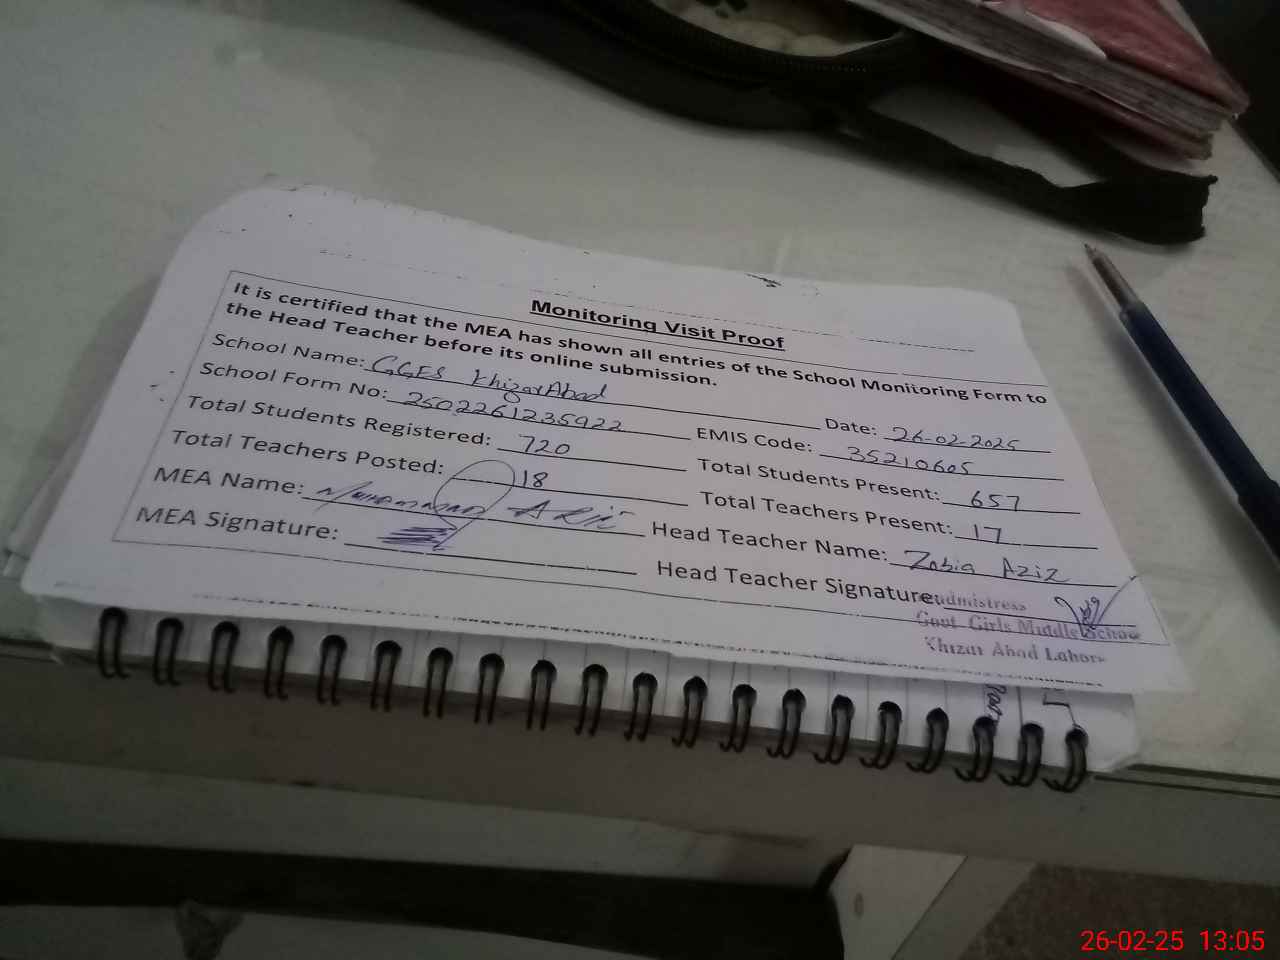 Monitoring Visit Proof
It is certified that the MEA has shown all entries of the School Monitoring Form to
the Head Teacher before its online submission.
School Name: GGES KhizarAbad Date: 26-02-2025
School Form No: 2502261235922 EMIS Code: 35210605
Total Students Registered: 720 Total Students Present: 657
Total Teachers Posted: 18 Total Teachers Present: 17
MEA Name: Muhammad Head Teacher Name: Zobia Aziz
MEA Signature: Head Teacher Signature:
Headmistress
Govt Girls Middle School
Khizar Abad Lahore
26-02-25 13:05